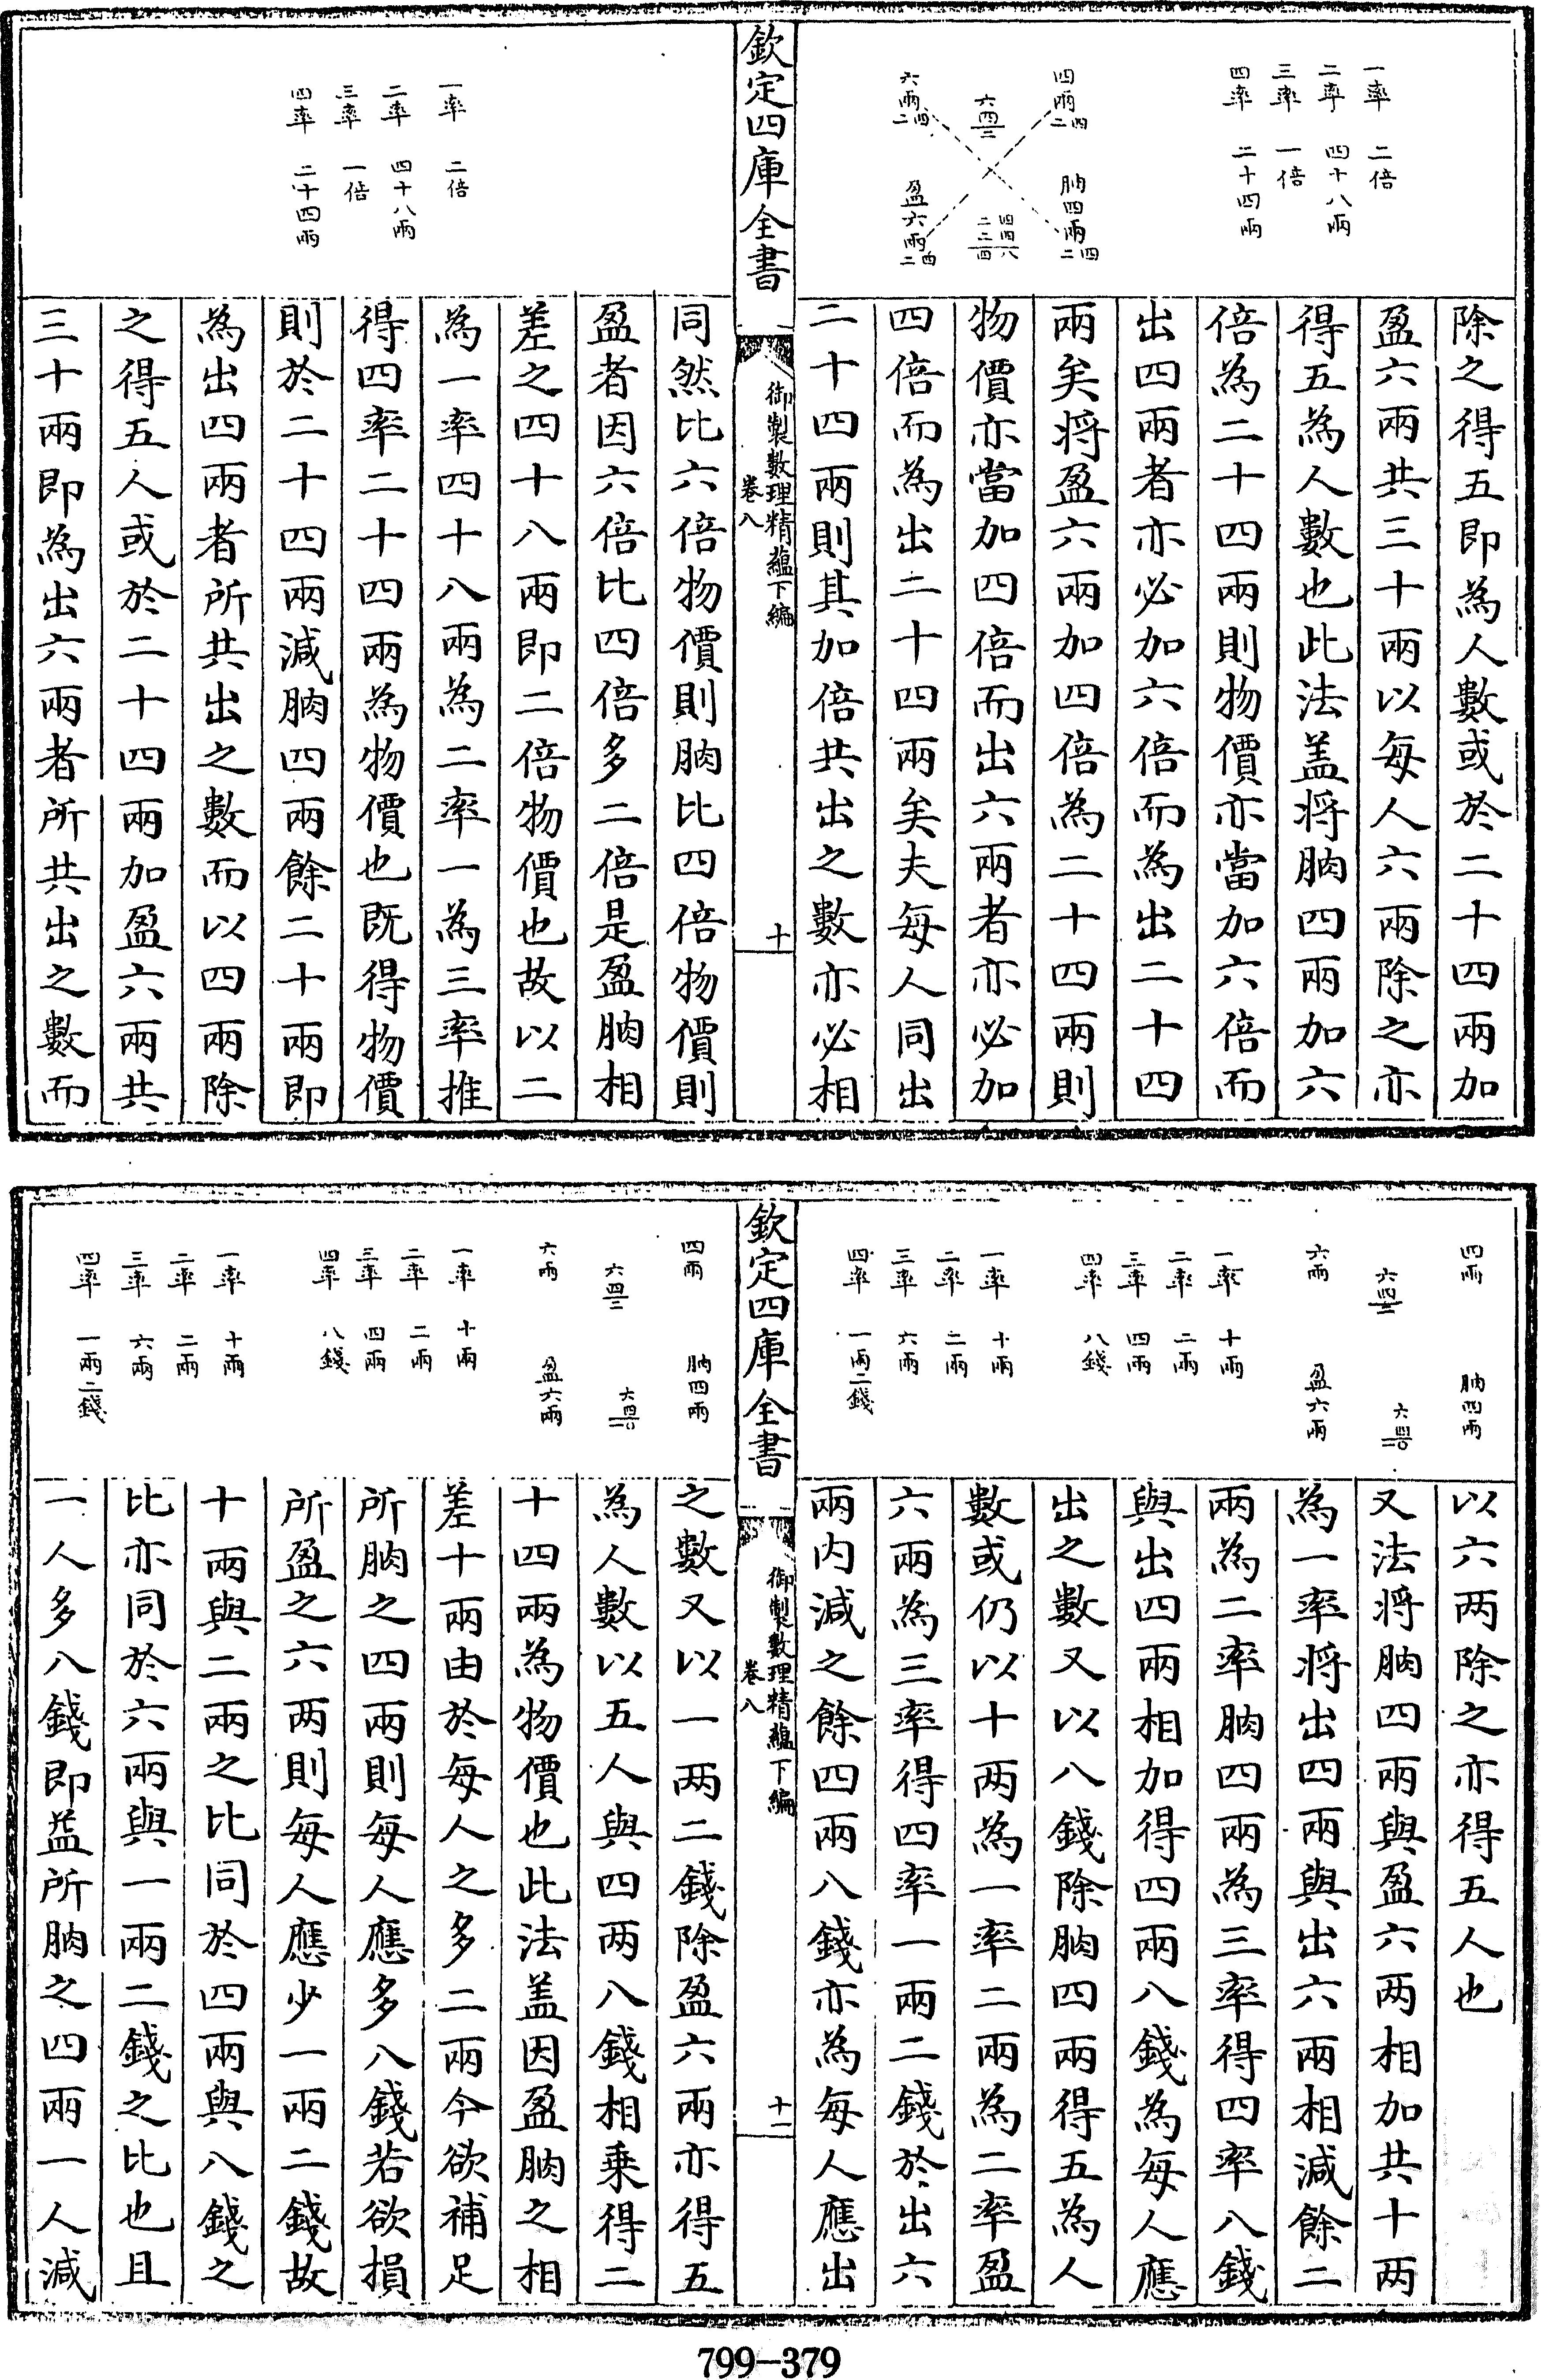 一率 二倍
二率 四十八兩
三率 一倍
四率 二十四兩
四兩 四二 朒四兩 四二
六四二 四四八 二二四
六兩 四二 盈六兩 四二
除之得五即為人數或於二十四兩加
盈六兩共三十兩以每人六兩除之亦
得五為人數也此法盖將朒四兩加六
倍為二十四兩則物價亦當加六倍而
出四兩者亦必加六倍而為出二十四
兩矣將盈六兩加四倍為二十四兩則
物價亦當加四倍而出六兩者亦必加
四倍而為出二十四兩矣夫每人同出
二十四兩則其加倍共出之數亦必相
欽定四庫全書
御製數理精蘊下編
卷八
十
一率 二倍
二率 四十八兩
三率 一倍
四率 二十四兩
同然比六倍物價則朒比四倍物價則
盈者因六倍比四倍多二倍是盈朒相
差之四十八兩即二倍物價也故以二
為一率四十八兩為二率一為三率推
得四率二十四兩為物價也既得物價
則於二十四兩減朒四兩餘二十兩即
為出四兩者所共出之數而以四兩除
之得五人或於二十四兩加盈六兩共
三十兩即為出六兩者所共出之數而
四兩 朒四兩
六四二 六四一〇
六兩 盈六兩
一率 十兩
二率 二兩
三率 四兩
四率 八錢
一率 十兩
二率 二兩
三率 六兩
四率 一兩二錢
以六两除之亦得五人也
又法將朒四兩與盈六两相加共十两
為一率將出四兩與出六兩相減餘二
兩為二率朒四兩為三率得四率八錢
與出四兩相加得四兩八錢為每人應
出之數又以八錢除朒四兩得五為人
數或仍以十两為一率二兩為二率盈
六兩為三率得四率一兩二錢於出六
兩内減之餘四兩八錢亦為每人應出
欽定四庫全書
御製數理精蘊下編
卷八
十一
四兩 朒四兩
六四二 六四一〇
六兩 盈六兩
一率 十兩
二率 二兩
三率 四兩
四率 八錢
一率 十兩
二率 二兩
三率 六兩
四率 一兩二錢
之數又以一两二錢除盈六兩亦得五
為人數以五人與四两八錢相乘得二
十四兩為物價也此法盖因盈朒之相
差十兩由於每人之多二兩今欲補足
所朒之四兩則每人應多八錢若欲損
所盈之六两則每人應少一兩二錢故
十兩與二兩之比同於四兩與八錢之
比亦同於六兩與一兩二錢之比也且
一人多八錢即益所朒之四兩一人減
799-379